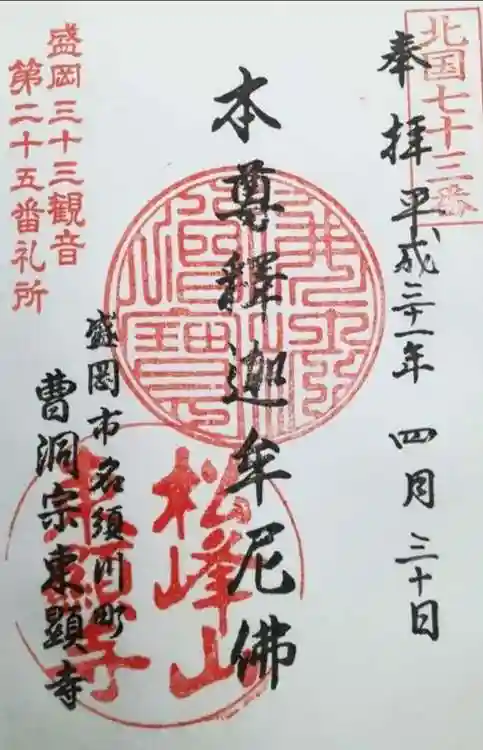 北国七十三番
奉拝 平成三十一年 四月 三十日
本尊釋迦牟尼佛
盛岡市名須川町
曹洞宗東顯寺
盛岡三十三観音
第二十五番礼所
松峰山
東顯寺